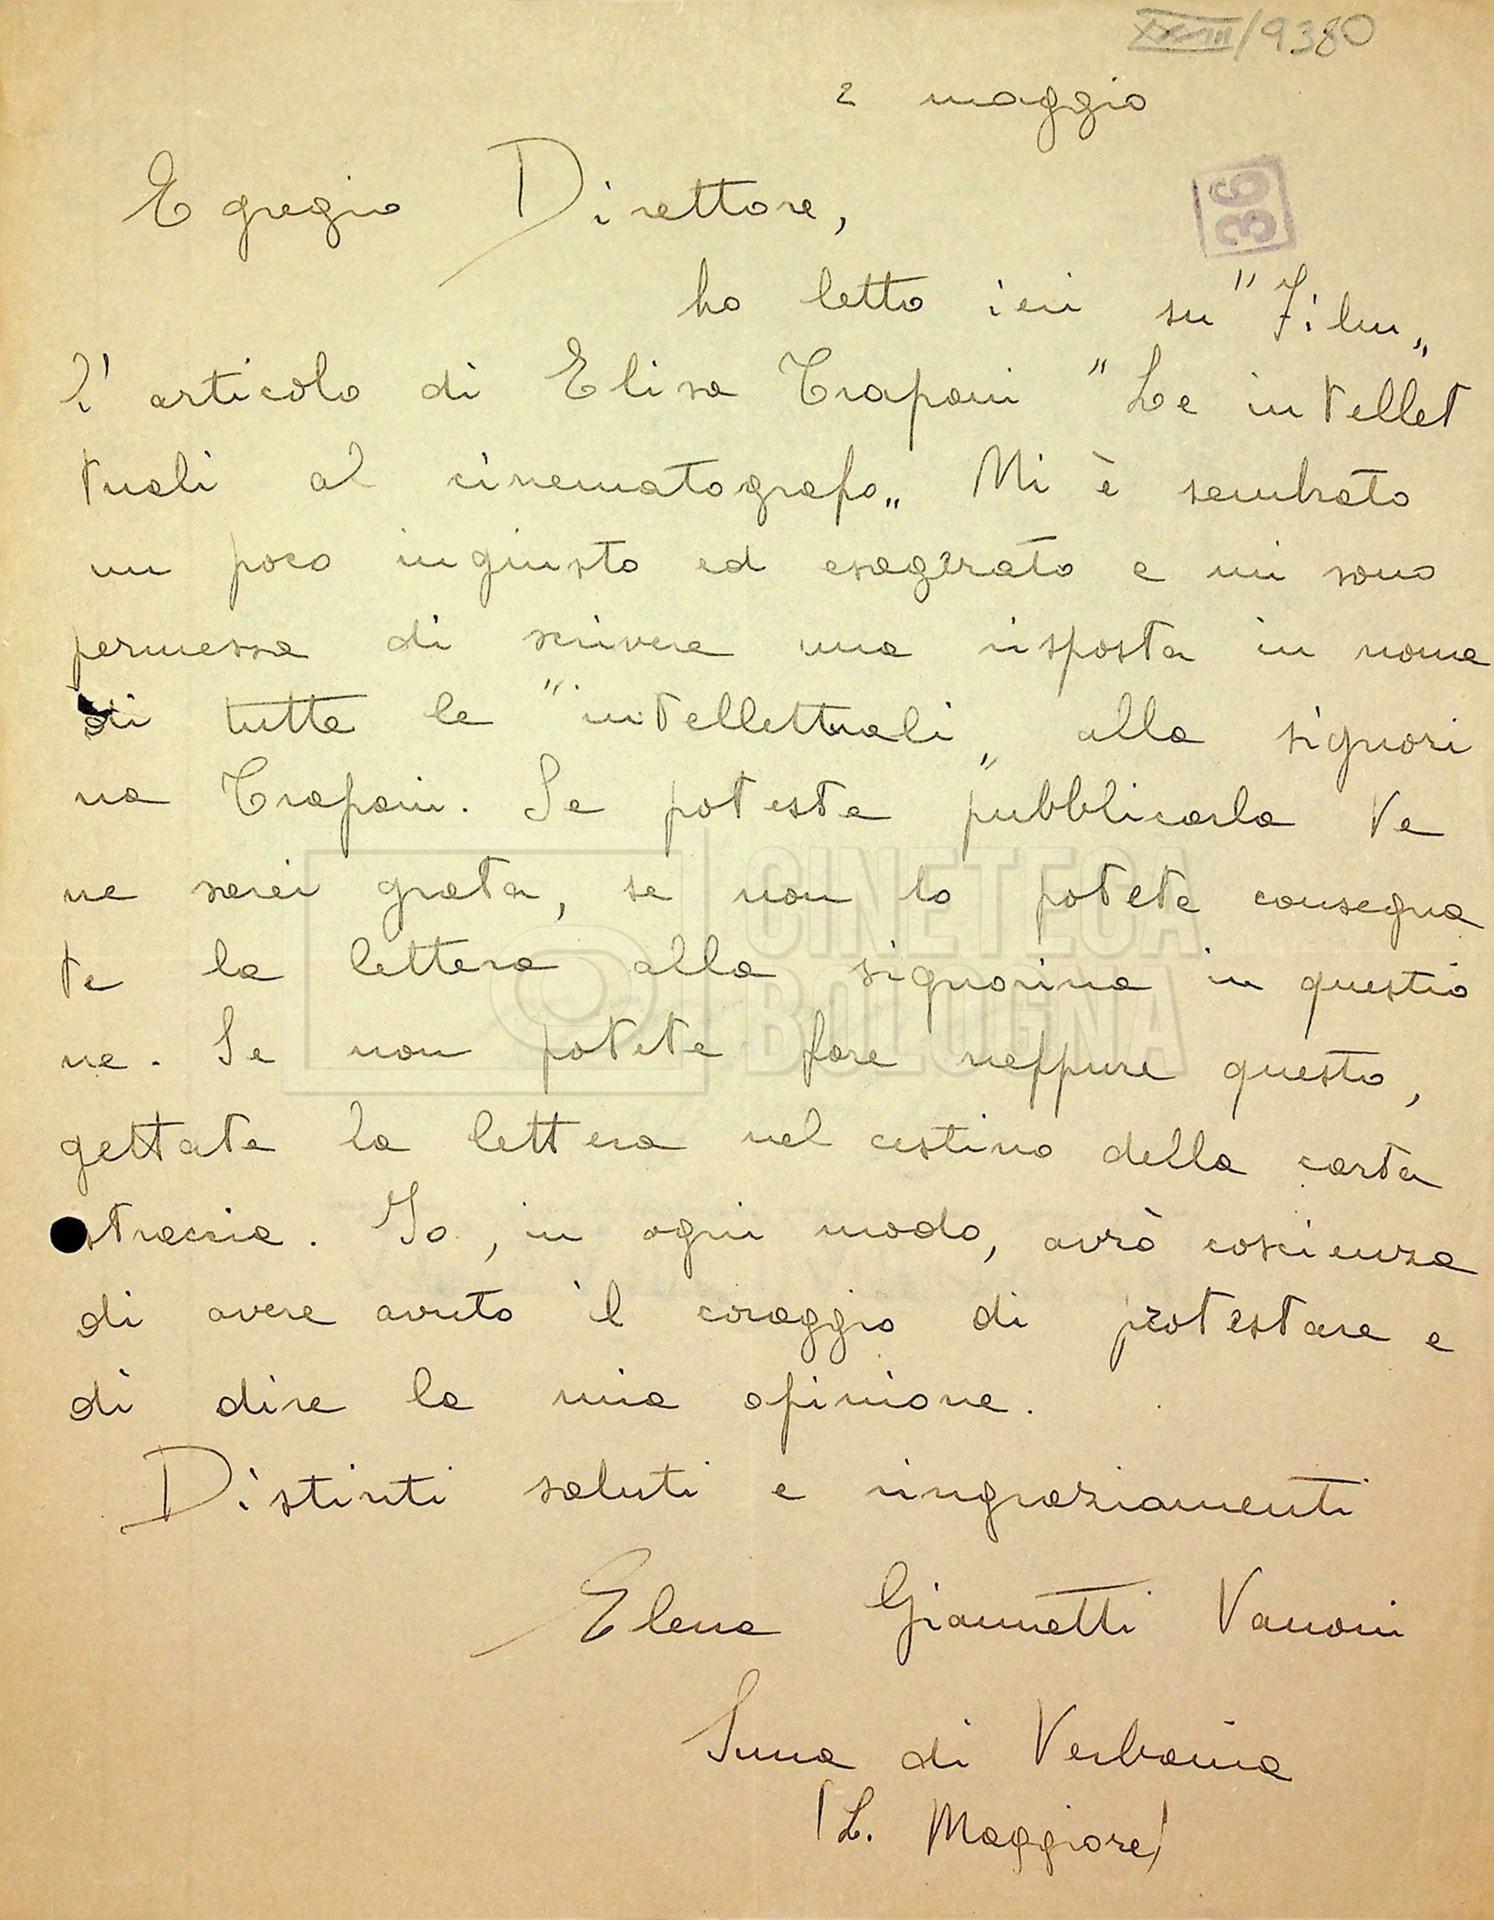 XXVIII/9380
2 maggio
36
Egregio Direttore,
ho letto ieri su "Film„
l'articolo di Elisa Trapani "Le intellet
tuali al cinematografo„ Mi è sembrato
un poco ingiusto ed esagerato e mi sono
permessa di scrivere una risposta in nome
di tutte le "intellettuali„ alla signori
na Trapani. Se poteste pubblicarla Ve
ne sarei grata, se non lo potete consegna
te la lettera alla signorina in questio
ne. Se non potete fare neppure questo,
gettate la lettera nel cestino della carta
straccia. Io, in ogni modo, avrò coscienza
di avere avuto il coraggio di protestare e
di dire la mia opinione.
Distinti saluti e ringraziamenti
Elena Giannetti Vanoni
Suna di Verbania
(L. Maggiore)
CINETECA
BOLOGNA